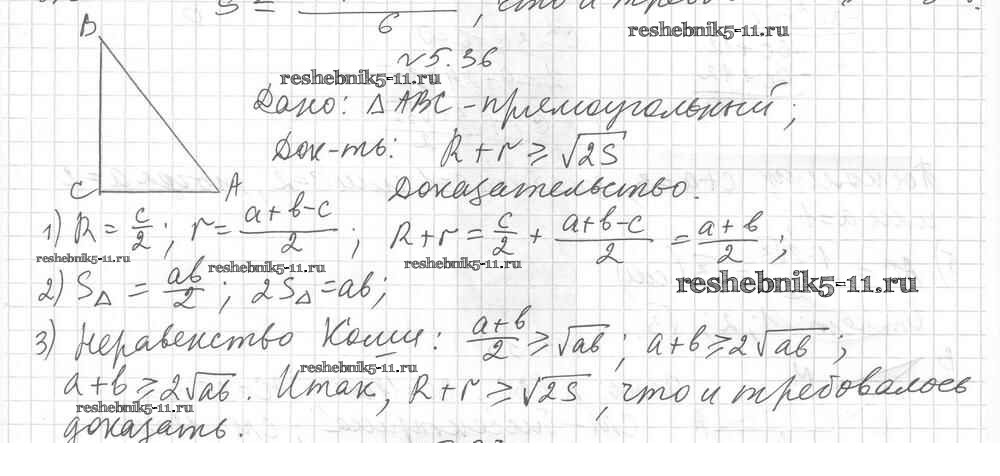 6
reshebnik5-11.ru
B
№5.36
reshebnik5-11.ru
Дано: △ABC - прямоугольный;
Док-ть: R + r ≥ √2S
C A
Доказательство.
1) R = c/2; r = (a+b-c)/2; R + r = c/2 + (a+b-c)/2 = (a+b)/2;
reshebnik5-11.ru reshebnik5-11.ru reshebnik5-11.ru
2) S△ = ab/2; 2S△ = ab;
reshebnik5-11.ru
3) Неравенство Коши: (a+b)/2 ≥ √ab; a+b ≥ 2√ab;
reshebnik5-11.ru
a+b ≥ 2√ab. Итак, R + r ≥ √2S, что и требовалось
reshebnik5-11.ru
доказать.